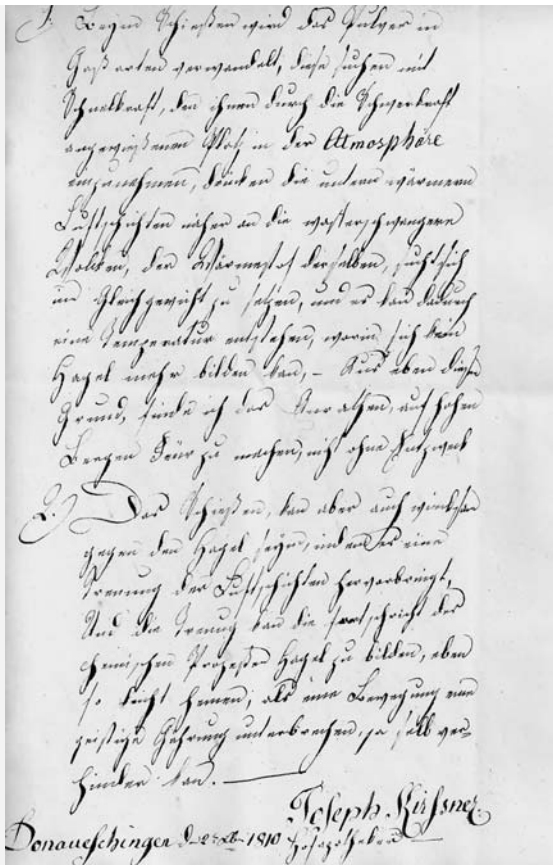 1. Beym Schießen wird das Pulver in
Gaßarten verwandelt, diese suchen mit
Schnelkraft, den ihnen durch die Schwerkraft
angewießenen Platz in der Atmosphäre
einzunehmen, drücken die untern wärmern
Luftschichten näher an die waßerschwangere
Wolken, der Wärmestof derselben, sucht sich
ins Gleichgewicht zu setzen, und es kan dadurch
eine Temperatur entstehen, worin sich kein
Hagel mehr bilden kan, – Aus eben diesem
Grund, finde ich das Anrathen, auf hohen
Bergen Feür zu machen, nicht ohne
2. Das Schießen, kan aber auch wirksam
gegen den Hagel seyn, indem es eine
Trenung der Luftschichten hervorbringt,
Und die Trenung kan die fortschritt des
chemischen Prozeßes Hagel zu bilden, eben
so leicht hemen, als eine Bewegung eine
geistige Gährung unterbrechen, ja selbst ver-
hindern kan. —
Joseph Kirsner
Donaueschingen 1810 Hofapotheker